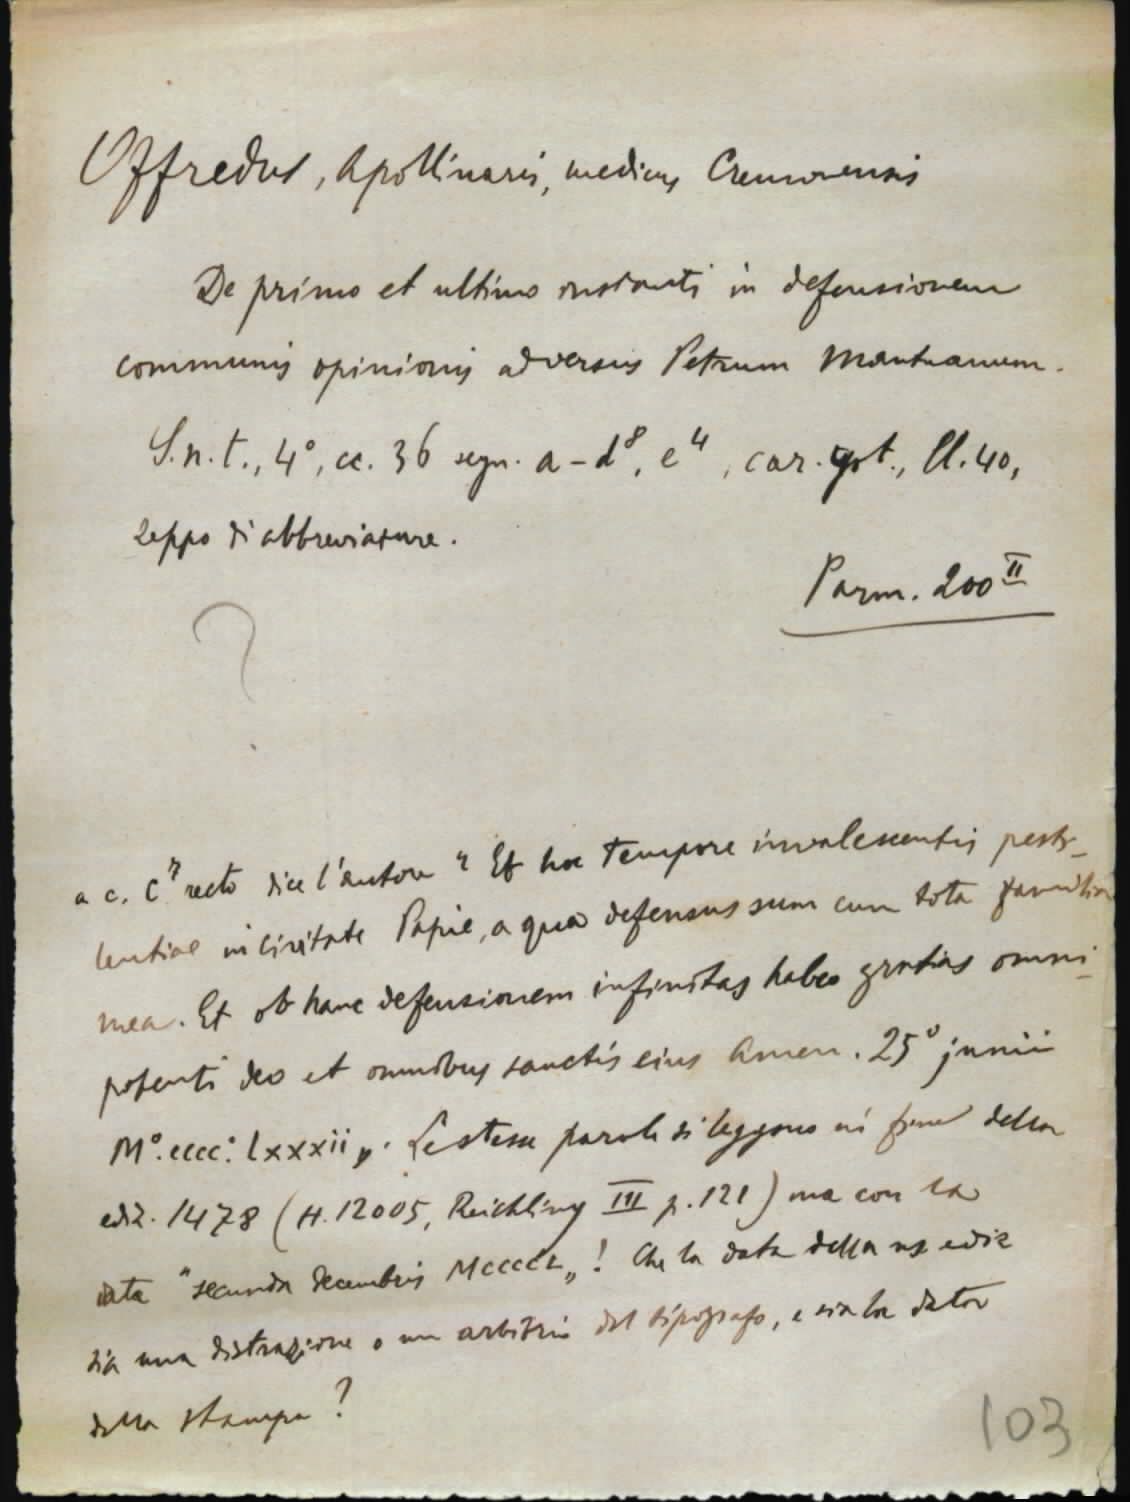 Offredus, Apollinaris, medicus Cremonensis
De primo et ultimo instanti in defensionem
communis opinionis adversus Petrum Mantuanum.
S.n.t., 4°, cc. 36 segn. a-d⁸, e⁴, car. got., ll. 40,
zeppo di abbreviature.
Parm. 200 II
?
a c. c⁷ recto dice l'autore "Et hoc tempore invalescentis pesti-
lentiae in civitate Papie, a qua defensus sum cum tota familia
mea. Et ob hanc defensionem infinitas habeo gratias omni-
potenti deo et omnibus sanctis eius Amen. 25° junii
M°.cccc°. lxxxii". Le stesse parole si leggono in fine della
ediz. 1478 (H. 12005, Reichling III p. 121) ma con la
data "secunda decembris MCCCCL"! Che la data della ediz
sia una distrazione o un arbitrio del tipografo, e sia la data
della stampa?
103